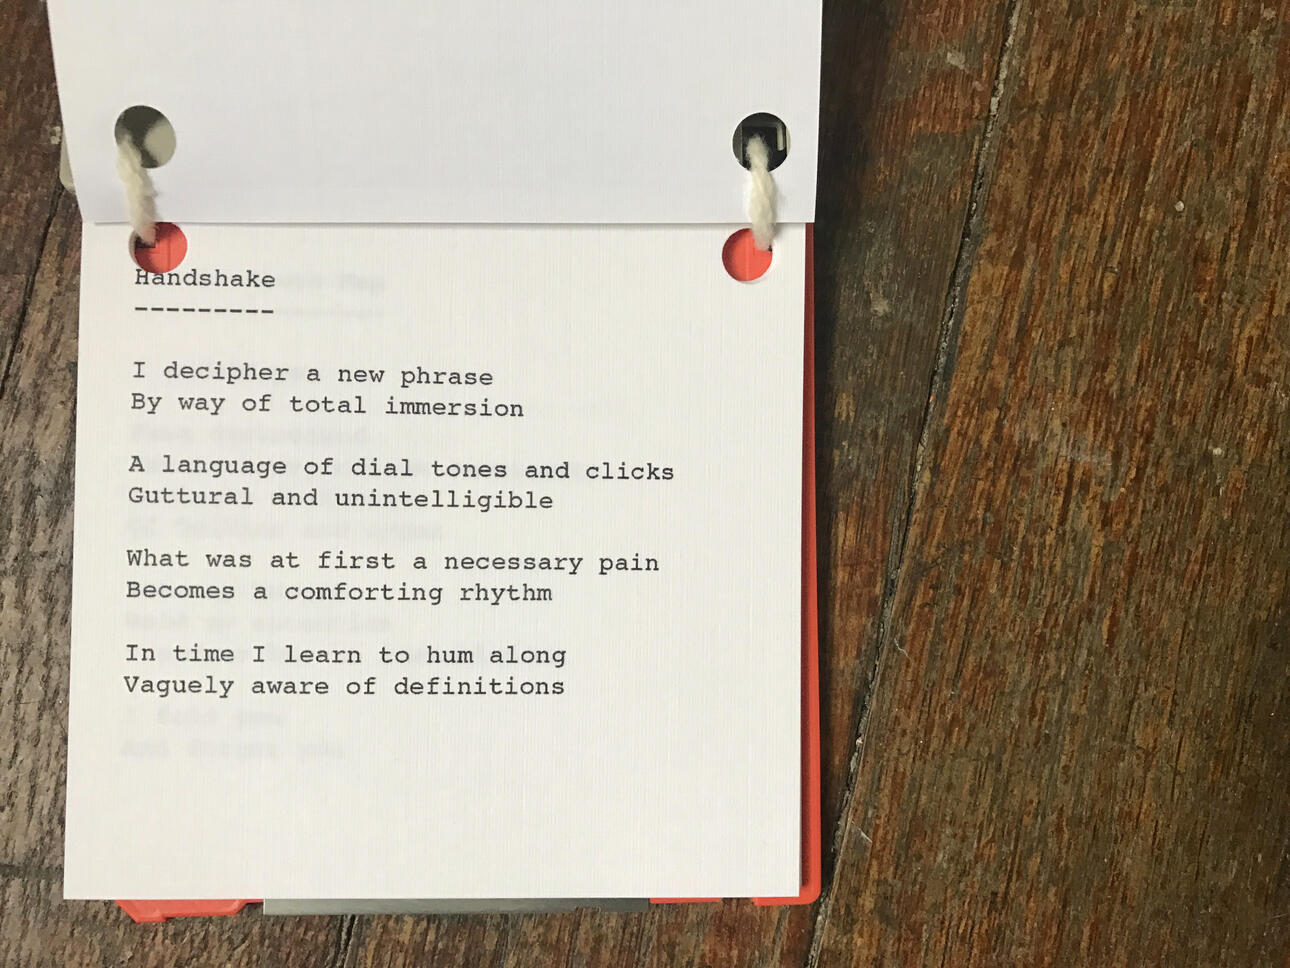 Handshake
---------
I decipher a new phrase
By way of total immersion
A language of dial tones and clicks
Guttural and unintelligible
What was at first a necessary pain
Becomes a comforting rhythm
In time I learn to hum along
Vaguely aware of definitions